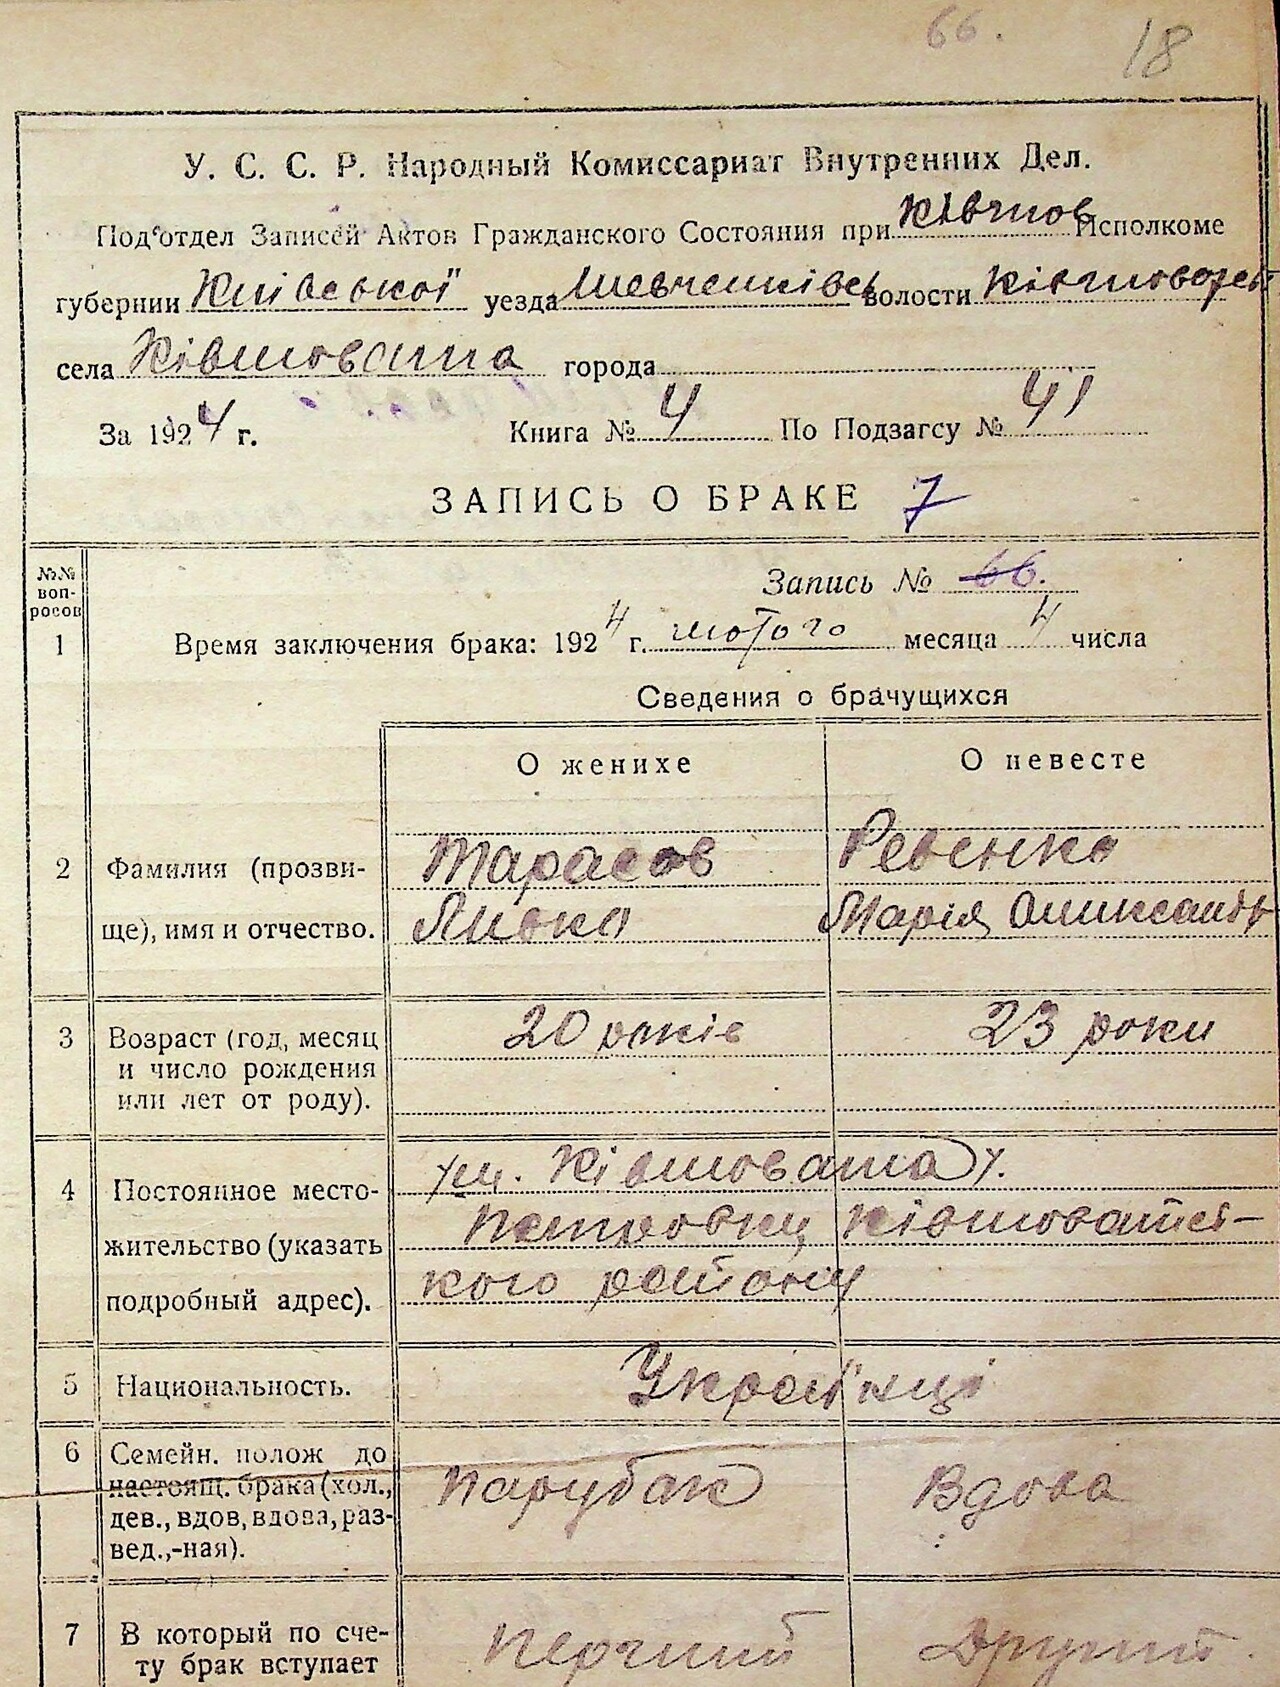 66. 18
У. С. С. Р. Народный Комиссариат Внутренних Дел.
Под'отдел Записей Актов Гражданского Состояния при Ківшов Исполкоме
губернии Київської уезда Шевченківськ волости
села Ківшовата города
За 1924 г. Книга № 4 По Подзагсу № 41
ЗАПИСЬ О БРАКЕ 7
№№ вопросов
Запись № 66.
1 Время заключения брака: 1924 г. лютого месяца 4 числа
Сведения о брачущихся
О женихе О невесте
2 Фамилия (прозви- Тарасов Ревенко
ще), имя и отчество. Марія Олександр
3 Возраст (год, месяц 20 років 23 роки
и число рождения
или лет от роду).
м. Ківшовата
4 Постоянное место-
жительство (указать Петровки Ківшоватсь-
подробный адрес). кого району
5 Национальность. Українці
6 Семейн. полож до
настоящ. брака (хол., Парубак Вдова
дев., вдов, вдова, раз-
вед.,-ная).
7 В который по сче- Перчий Другий.
ту брак вступает